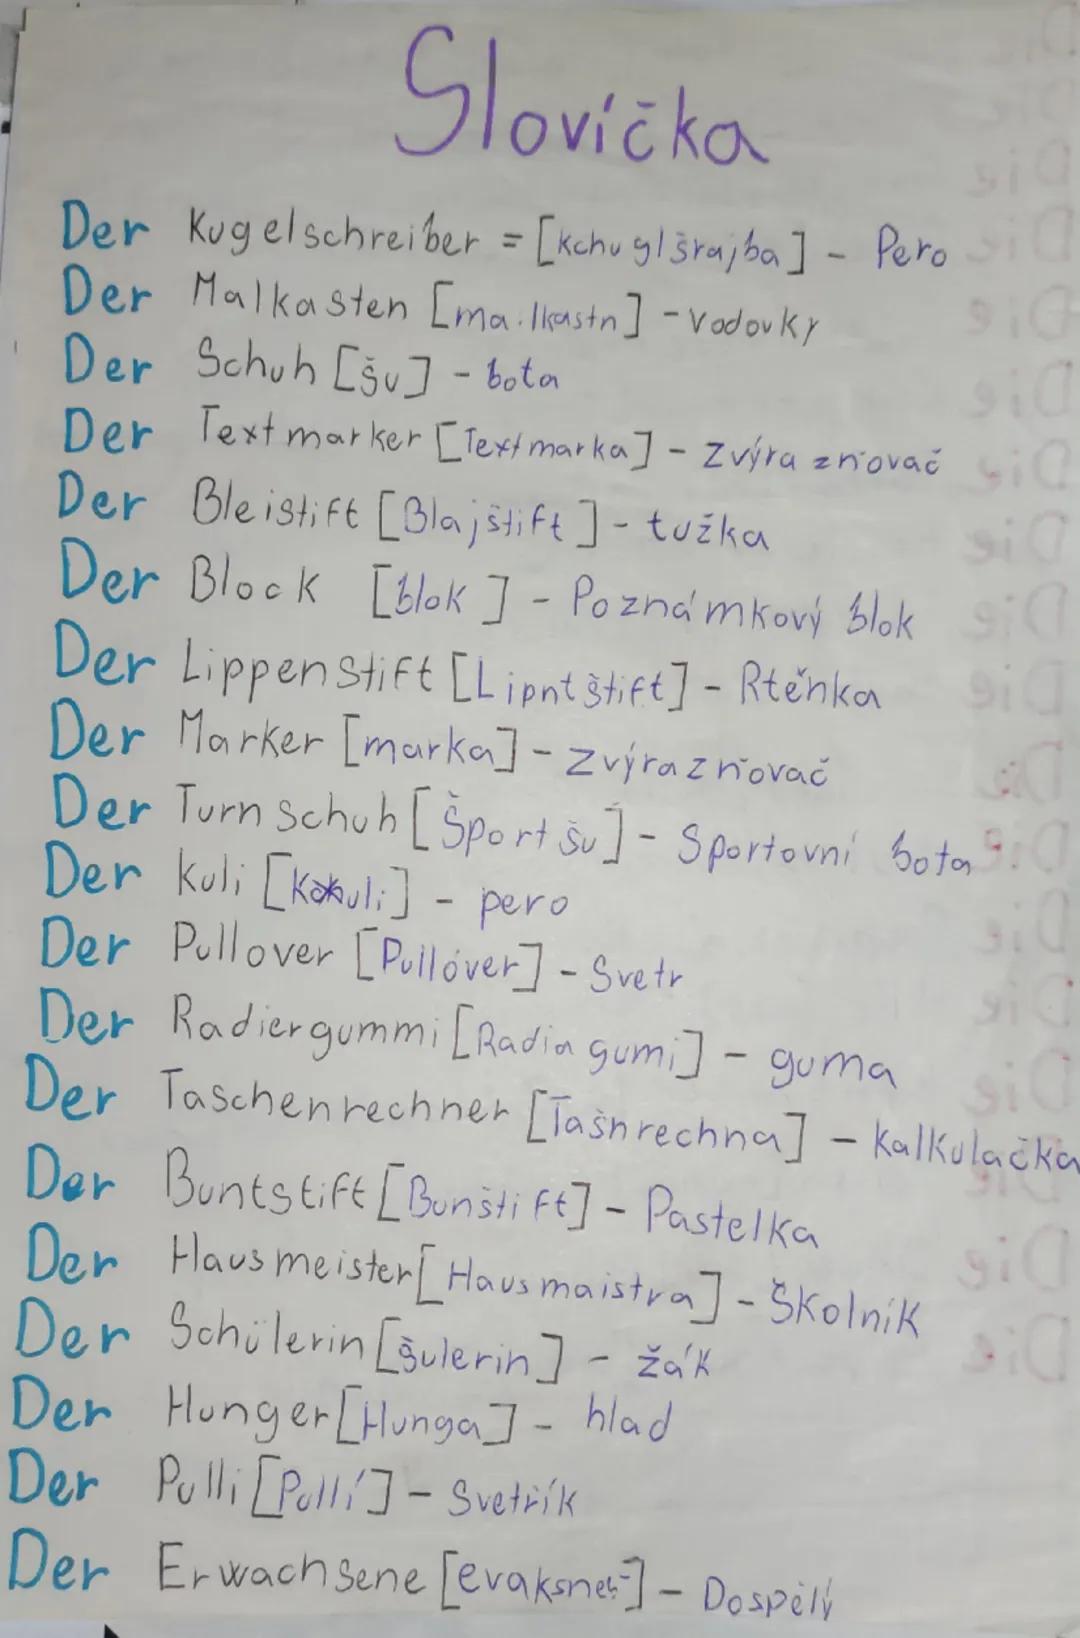 Slovíčka
Der Kugelschreiber = [kchuglšrajba] - Pero
Der Malkasten [ma:lkastn] - vodovky
Der Schuh [šu] - bota
Der Textmarker [Textmarka] - Zvýrazňovač
Der Bleistift [Blajštift] - tužka
Der Block [blok] - Poznámkový blok
Der Lippenstift [Lipntštift] - Rtěnka
Der Marker [marka] - zvýrazňovač
Der Turnschuh [Športšu] - Sportovní bota
Der kuli [kuli] - pero
Der Pullover [Pullóver] - Svetr
Der Radiergummi [Radia gumi] - guma
Der Taschenrechner [Tašnrechna] - Kalkulačka
Der Buntstift [Bunštift] - Pastelka
Der Hausmeister [Hausmaistra] - Školník
Der Schülerin [šulerin] - žák
Der Hunger [Hunga] - hlad
Der Pulli [Pullí] - Svetřík
Der Erwachsene - Dospělý